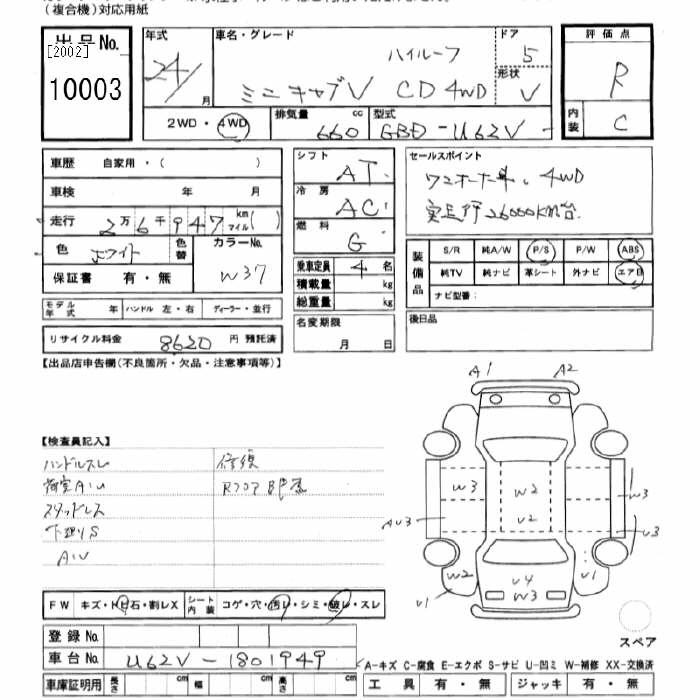 （複合機）対応用紙
出品No.
[2002]
10003
年式
24/
月
車名・グレード
ハイルーフ
ミニキャブV CD 4WD
ドア
5
形状
V
評価点
R
内装
C
2WD・4WD
排気量
660 cc
型式
GBD-U62V
車歴 自家用・（ ）
車検 年 月
走行 2万6千947 km マイル（ ）
色 ホワイト 色替 カラーNo. W37
保証書 有・無
モデル年式 年 ハンドル 左・右 ディーラー・並行
リサイクル料金 8620 円 預託済
シフト AT
冷房 AC
燃料 G
乗車定員 4 名
積載量 kg
総重量 kg
名変期限
月 日
セールスポイント
ワンオーナー車、4WD
実走行26000KM台
装備品
S/R 純A/W P/S P/W ABS
純TV 純ナビ 革シート 外ナビ エアB
ナビ型番：
後日品
【出品店申告欄（不良箇所・欠品・注意事項等）】
【検査員記入】
ハンドルスレ 修復
荷室AU Rフロア
スタッドレス
下廻りS
AU
A1 A2
W3 W2 W3
AU3 U2 U3
W2 U4 U1
U1 W3
スペア
FW キズ・トビ石・割レX シート内装 コゲ・穴・汚レ・シミ・破レ・スレ
登録No.
車台No. U62V-1801949
A-キズ C-腐食 E-エクボ S-サビ U-凹ミ W-補修 XX-交換済
車庫証明用 長さ cm 幅 cm 高さ cm
工具 有・無 ジャッキ 有・無